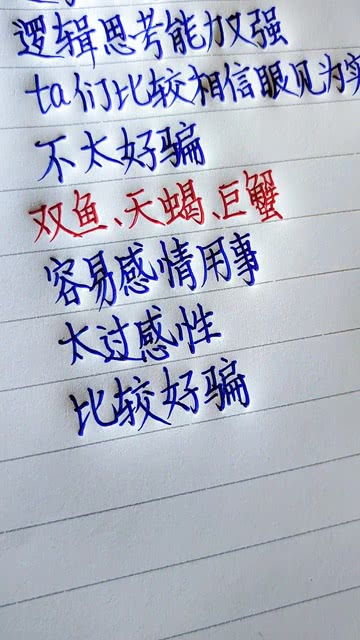 逻辑思考能力又强
ta们比较相信眼见为实
不太好骗
双鱼、天蝎、巨蟹
容易感情用事
太过感性
比较好骗